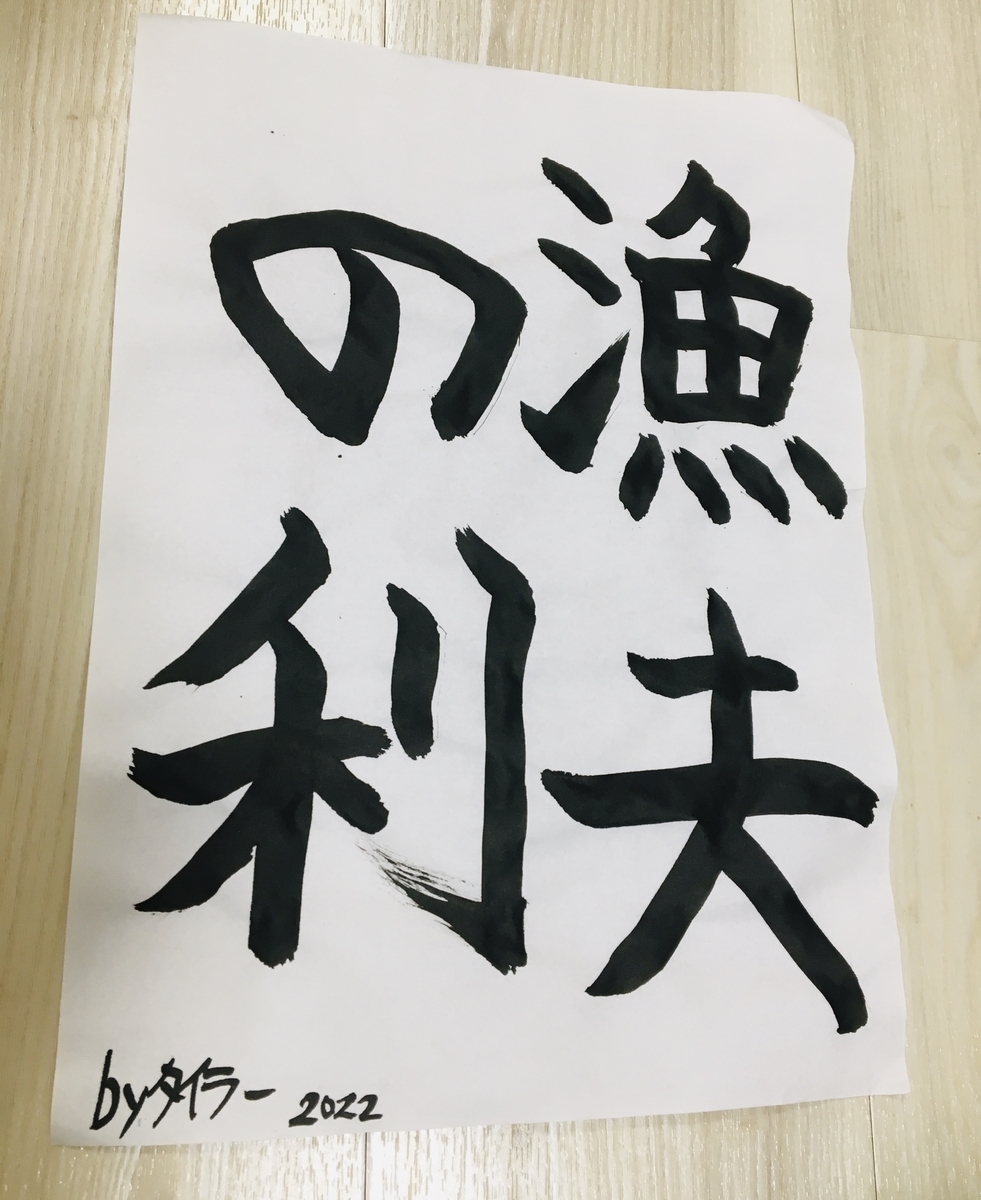 漁夫
の利
byタイラー 2022